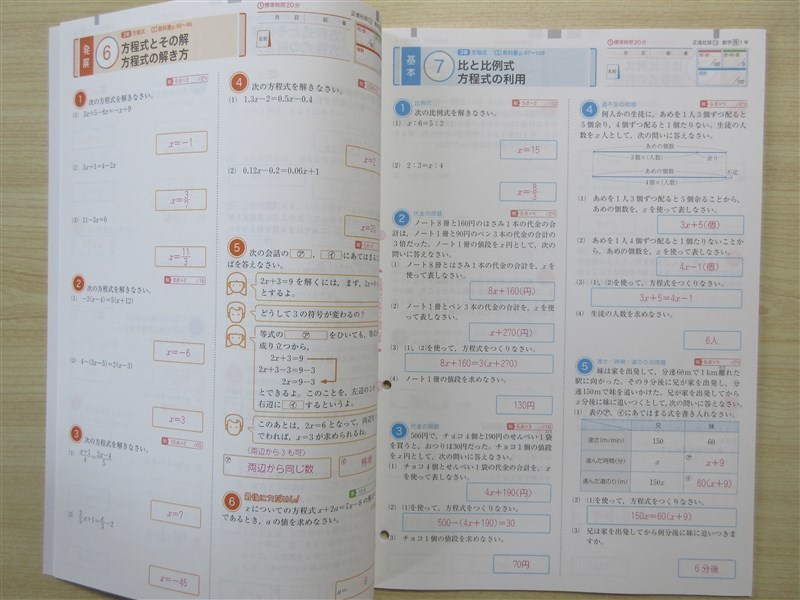 発展
6
2章 方程式
方程式とその解
方程式の解き方
標準時間20分
月 日 組 番
名前
1 次の方程式を解きなさい。
x=-1
x=
(3) 11-2x=6
x=
2 次の方程式を解きなさい。
(1) -3(x-4)=5(x+12)
x=-6
x=3
3 次の方程式を解きなさい。
x=7
x=-45
4 次の方程式を解きなさい。
(1) 1.3x-2=0.5x-0.4
(2) 0.12x-0.2=0.06x+1
5 次の会話の ㋐ , ㋑ にあてはまる
ばを答えなさい。
2x+3=9 を解くには, まず, 2x=9
とするよ。
どうして3の符号が変わるの?
等式の ㋐ をひいても, 等式
成り立つから,
2x+3=9
2x+3-3=9-3
2x=9-3
とできるよ。このことを, 左辺の
右辺に ㋑ するというよ。
このあとは, 2x=6となって, 両辺
でわれば, x=3が求められるね。
(両辺から3も可)
両辺から同じ数
6 最後に力だめし!
xについての方程式 x+2a=7x-8
であるとき, aの値を求めなさい。
基本
7
2章 方程式
比と比例式
方程式の利用
標準時間20分
正進社版 数学 1年
月 日 組 番
名前
1 比例式
次の比例式を解きなさい。
(1) x:6=5:2
x=15
(2) 2:3=x:4
x=8/3
2 代金の問題
ノート8冊と160円のはさみ1本の代金の合
計は, ノート1冊と90円のペン3本の代金の合計の
3倍だった。ノート1冊の値段をx円として, 次の
問いに答えなさい。
(1) ノート8冊とはさみ1本の代金の合計を, xを
使って表しなさい。
8x+160(円)
(2) ノート1冊とペン3本の代金の合計を, xを使
って表しなさい。
x+270(円)
(3) (1), (2)を使って, 方程式をつくりなさい。
8x+160=3(x+270)
(4) ノート1冊の値段を求めなさい。
130円
3 代金の問題
500円で, チョコ4個と190円のせんべい1袋
を買うと, おつりは30円だった。チョコ1個の値段
をx円として, 次の問いに答えなさい。
(1) チョコ4個とせんべい1袋の代金の合計を, x
を使って表しなさい。
4x+190(円)
(2) (1)を使って, 方程式をつくりなさい。
500-(4x+190)=30
(3) チョコ1個の値段を求めなさい。
70円
4 過不足の問題
何人かの生徒に, あめを1人3個ずつ配ると
5個余り, 4個ずつ配ると1個たりない。生徒の人
数をx人として, 次の問いに答えなさい。
あめの個数
3個×(人数)
余り
あめの個数
4個×(人数)
不足
(1) あめを1人3個ずつ配ると5個余ることから,
あめの個数を, xを使って表しなさい。
3x+5(個)
(2) あめを1人4個ずつ配ると1個たりないことか
ら, あめの個数を, xを使って表しなさい。
4x-1(個)
(3) (1), (2)を使って, 方程式をつくりなさい。
3x+5=4x-1
(4) 生徒の人数を求めなさい。
6人
5 速さ・時間・道のりの問題
妹は家を出発して, 分速60mで1km離れた
駅に向かった。その9分後に兄が家を出発し, 分
速150mで妹を追いかけた。兄が家を出発してから
x分後に妹に追いつくとして, 次の問いに答えなさい。
(1) 表の㋐, ㋑にあてはまる式を書き入れなさい。
兄 妹
速さ(m/min) 150 60
進んだ時間(分) x ㋐ x+9
進んだ道のり(m) 150x ㋑ 60(x+9)
(2) (1)を使って, 方程式をつくりなさい。
150x=60(x+9)
(3) 兄は家を出発してから何分後に妹に追いつきま
すか。
6分後